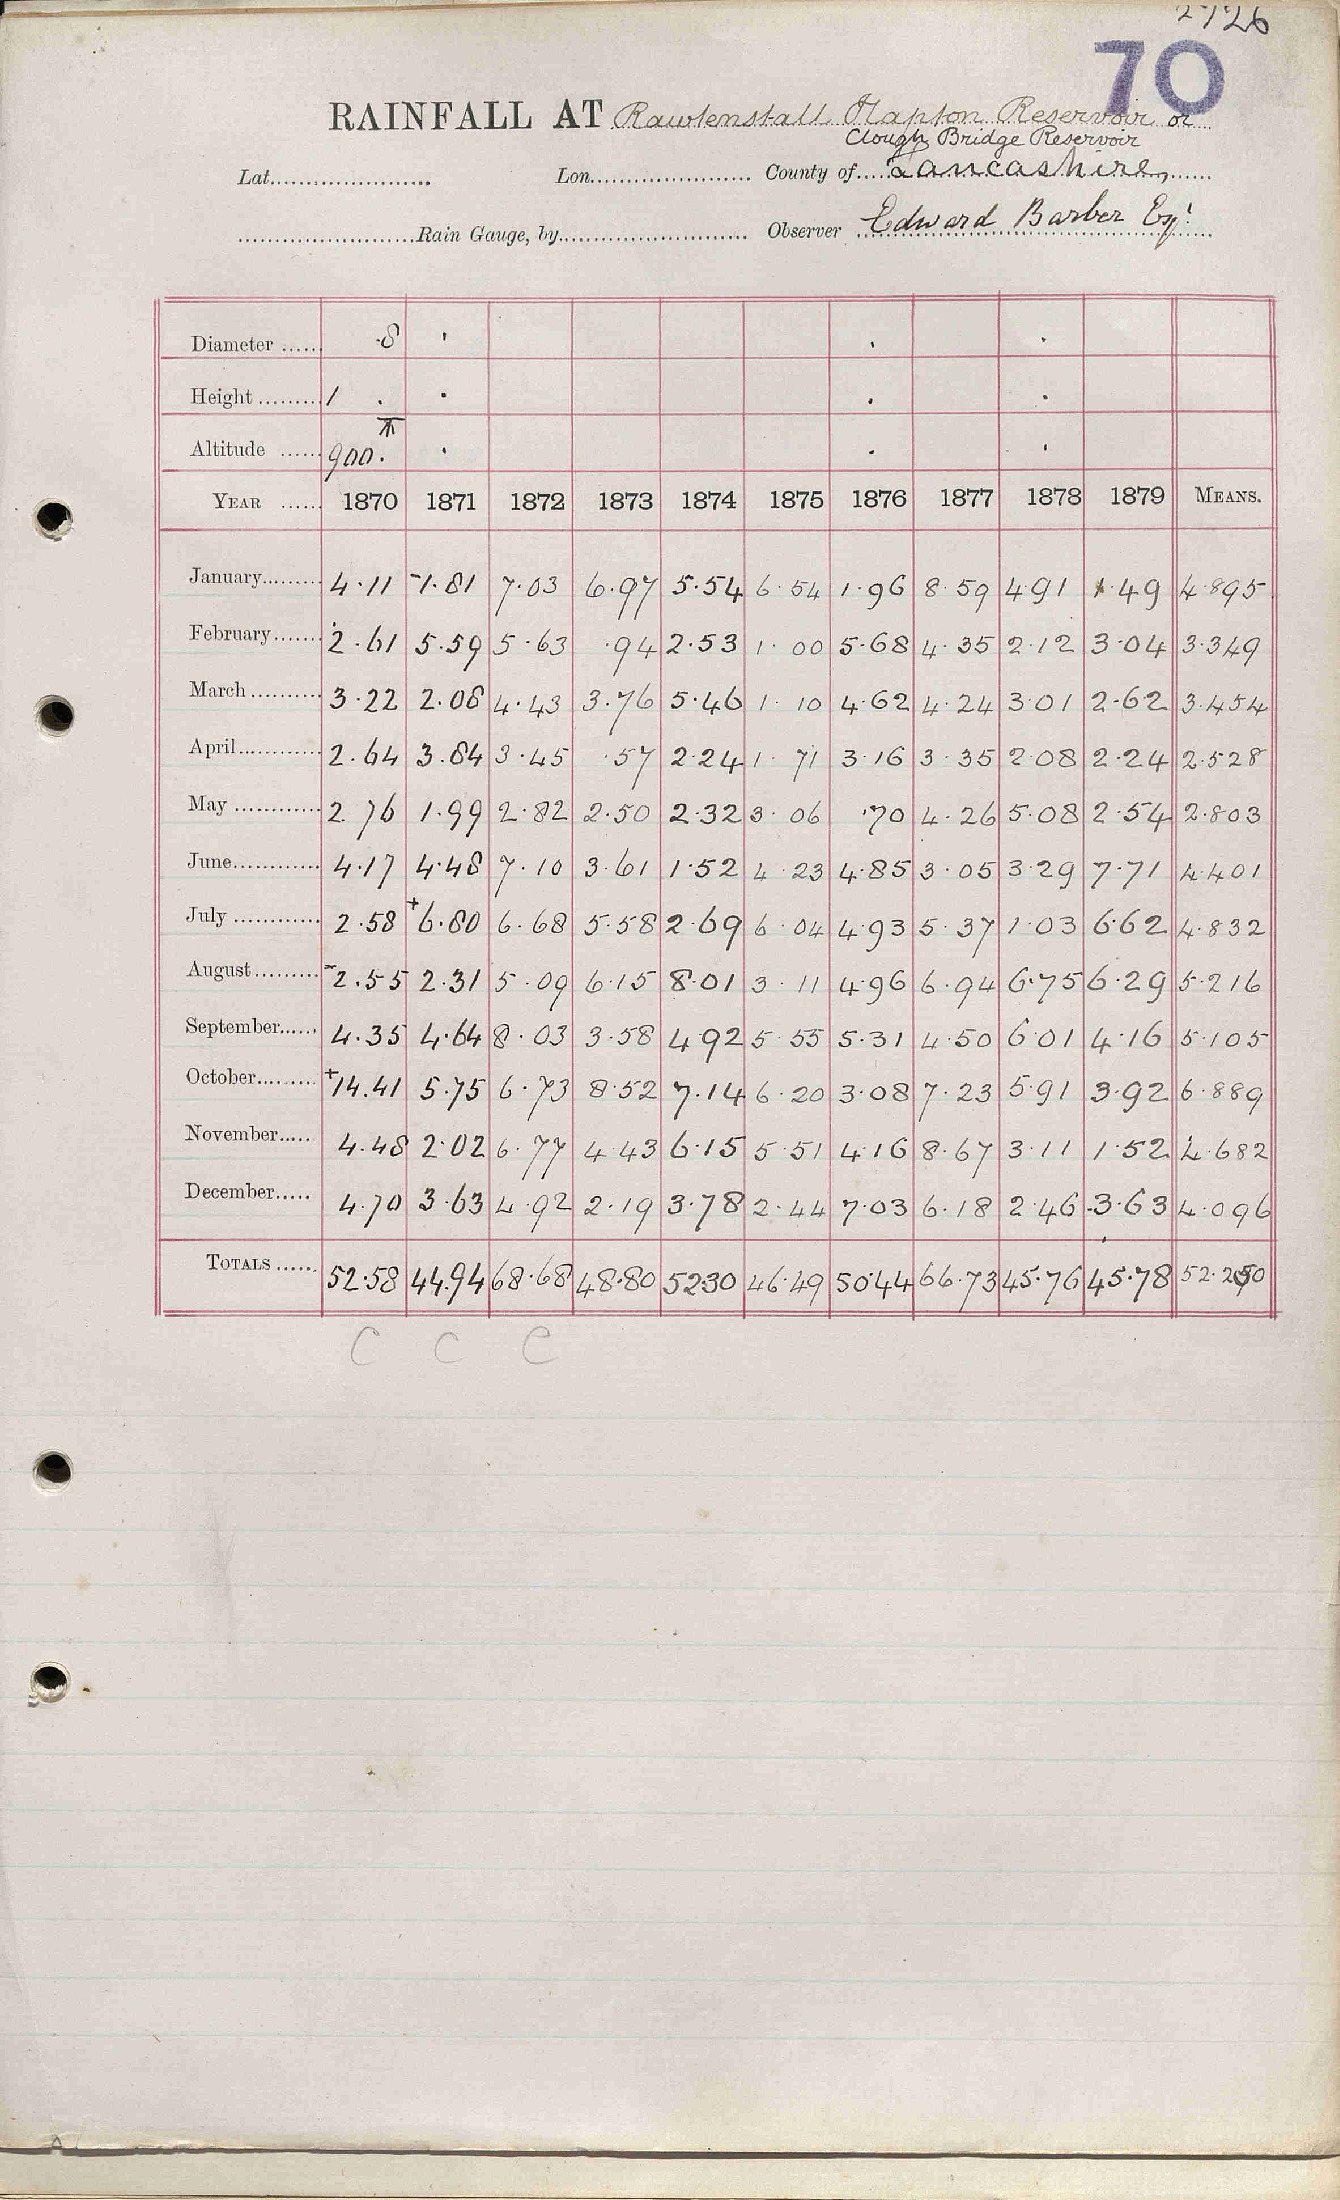 2726
70
RAINFALL AT Rawtenstall Hapton Reservoir or
Clough Bridge Reservoir
Lat. Lon. County of Lancashire
Rain Gauge, by Observer Edward Barber Esq.
Diameter 8
Height 1
Altitude 900.
YEAR 1870 1871 1872 1873 1874 1875 1876 1877 1878 1879 MEANS.
January 4.11 -1.81 7.03 6.97 5.54 6.54 1.96 8.59 4.91 1.49 4.895
February 2.61 5.59 5.63 .94 2.53 1.00 5.68 4.35 2.12 3.04 3.349
March 3.22 2.08 4.43 3.76 5.46 1.10 4.62 4.24 3.01 2.62 3.454
April 2.64 3.84 3.45 .57 2.24 1.71 3.16 3.35 2.08 2.24 2.528
May 2.76 1.99 2.82 2.50 2.32 3.06 .70 4.26 5.08 2.54 2.803
June 4.17 4.48 7.10 3.61 1.52 4.23 4.85 3.05 3.29 7.71 4.401
July 2.58 +6.80 6.68 5.58 2.69 6.04 4.93 5.37 1.03 6.62 4.832
August -2.55 2.31 5.09 6.15 8.01 3.11 4.96 6.94 6.75 6.29 5.216
September 4.35 4.64 8.03 3.58 4.92 5.55 5.31 4.50 6.01 4.16 5.105
October +14.41 5.75 6.73 8.52 7.14 6.20 3.08 7.23 5.91 3.92 6.889
November 4.48 2.02 6.77 4.43 6.15 5.51 4.16 8.67 3.11 1.52 4.682
December 4.70 3.63 4.92 2.19 3.78 2.44 7.03 6.18 2.46 3.63 4.096
TOTALS 52.58 44.94 68.68 48.80 52.30 46.49 50.44 66.73 45.76 45.78 52.250
C C C